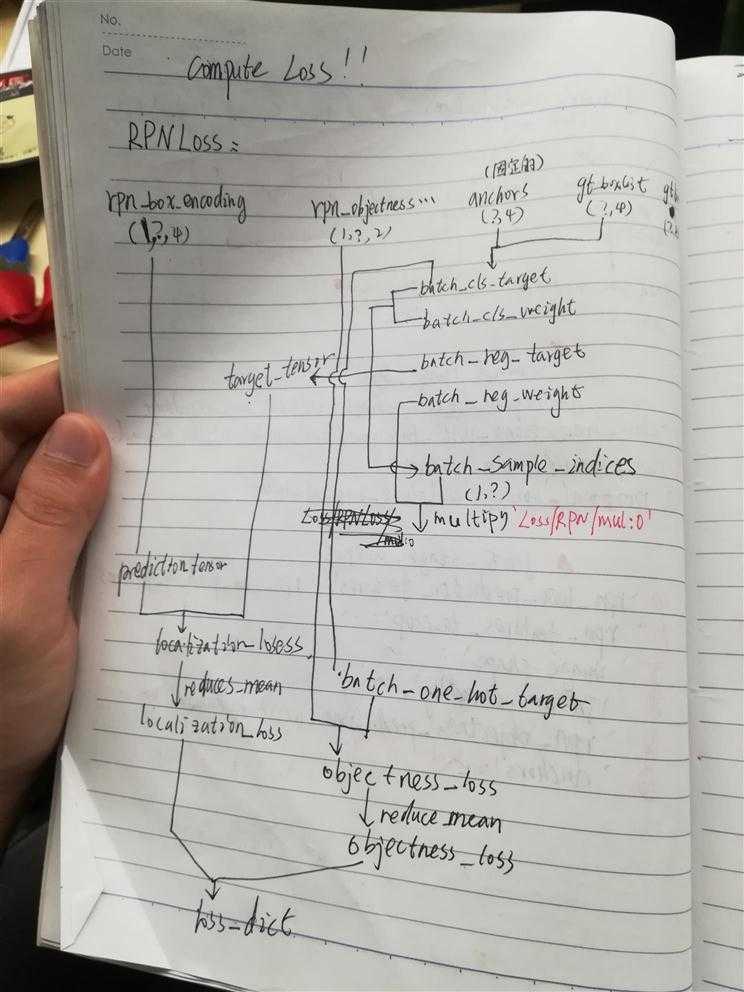 No.
Date
Compute Loss!!
RPNLoss:
(固定的)
rpn_box_encoding
rpn_objectness...
anchors
gt_boxlist
(1,?,4)
(1,?,2)
(?,4)
(?,4)
batch_cls_target
batch_cls_weight
target_tensor
batch_reg_target
batch_reg_weight
batch_sample_indices
(1,?)
Loss/RPNLoss/
/mul:0
multipy 'Loss/RPN/mul:0'
prediction tensor
localization_losess
reduces_mean
localization_loss
batch_one_hot_target
objectness_loss
reduce_mean
objectness_loss
loss_dict